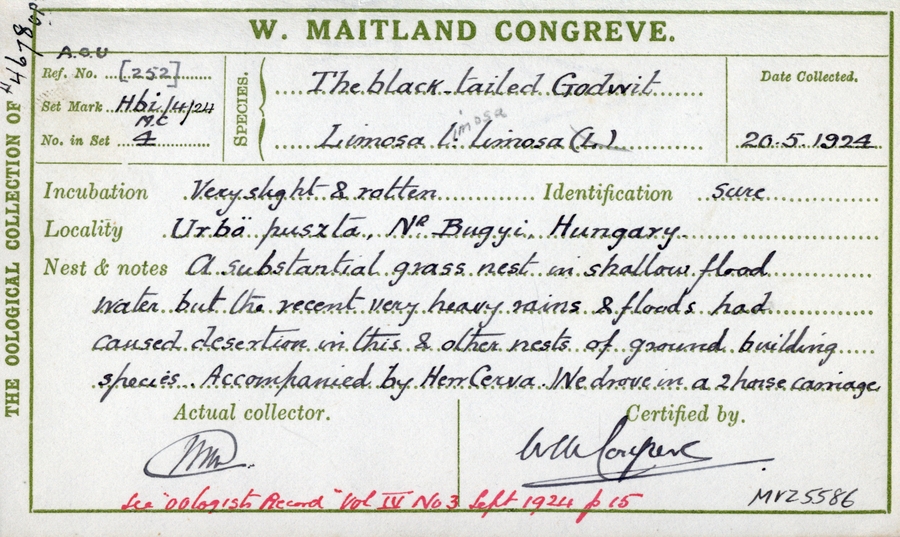 W. MAITLAND CONGREVE.
THE OOLOGICAL COLLECTION OF
A.O.U
Ref. No. [252]
Set Mark Hbi/4/24
M.C
No. in Set 4
SPECIES.
The black-tailed Godwit
Limosa l. limosa (L)
limosa
Date Collected.
20.5.1924
Incubation Very slight & rotten Identification sure
Locality Urbö puszta, Nr Bugyi, Hungary
Nest & notes A substantial grass nest in shallow flood
water but the recent very heavy rains & floods had
caused desertion in this & other nests of ground building
species. Accompanied by Herr Cerva. We drove in a 2 horse carriage
Actual collector. Certified by.
WM Congreve
See "Oologists Record" Vol IV No 3 Sept 1924 p 15
MVZ 5586